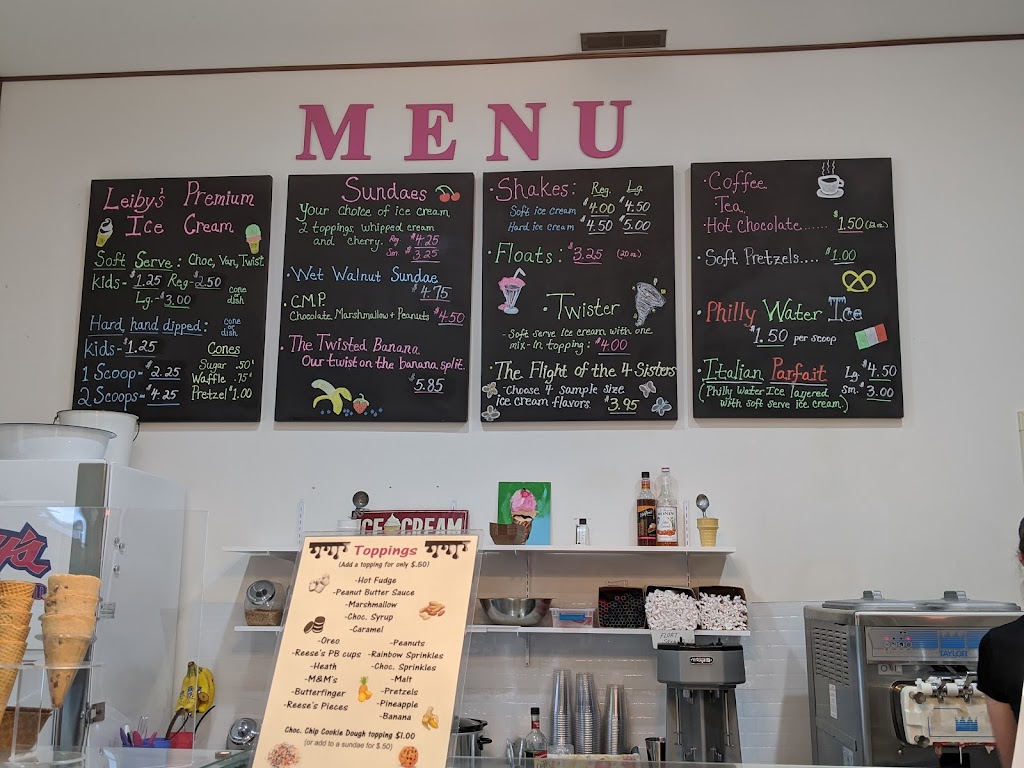 MENU
Leiby's Premium
Ice Cream
Soft Serve: Choc, Van, Twist
Kids-$1.25 Reg-$2.50
Lg.-$3.00
cone
or
dish
Hard, hand dipped:
cone
or
dish
Kids-$1.25
1 Scoop-$2.25
2 Scoops-$4.25
Cones
Sugar .50¢
Waffle .75¢
Pretzel $1.00
Sundaes
Your choice of ice cream,
2 toppings, whipped cream
and cherry. Reg. $4.25
Sm. $3.25
·Wet Walnut Sundae
$4.75
·C.M.P.
Chocolate, Marshmallow + Peanuts $4.50
·The Twisted Banana
Our twist on the banana split.
$5.85
·Shakes: Reg. Lg.
Soft ice cream $4.00 $4.50
Hard ice cream $4.50 $5.00
·Floats: $3.25 (20oz.)
·Twister
-Soft serve ice cream with one
mix-in topping: $4.00
·The Flight of the 4 Sisters
-Choose 4 sample size
ice cream flavors. $3.95
·Coffee,
Tea,
Hot Chocolate...... $1.50 (12oz.)
·Soft Pretzels.... $1.00
·Philly Water Ice
$1.50 per scoop
·Italian Parfait Lg. $4.50
(Philly Water Ice layered Sm. $3.00
with soft serve ice cream.)
ICE CREAM
Toppings
(Add a topping for only $.50)
-Hot Fudge
-Peanut Butter Sauce
-Marshmallow
-Choc. Syrup
-Caramel
-Oreo
-Reese's PB cups
-Heath
-M&M's
-Butterfinger
-Reese's Pieces
-Peanuts
-Rainbow Sprinkles
-Choc. Sprinkles
-Malt
-Pretzels
-Pineapple
-Banana
Choc. Chip Cookie Dough topping $1.00
(or add to a sundae for $.50)
TAYLOR